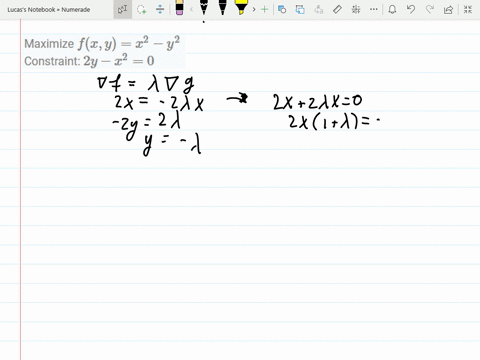 Lucas's Notebook + Numerade
Maximize f(x, y) = x² − y²
Constraint: 2y − x² = 0
∇f = λ∇g
2x = -2λx → 2x+2λx=0
-2y = 2λ 2x(1+λ)=
y = -λ